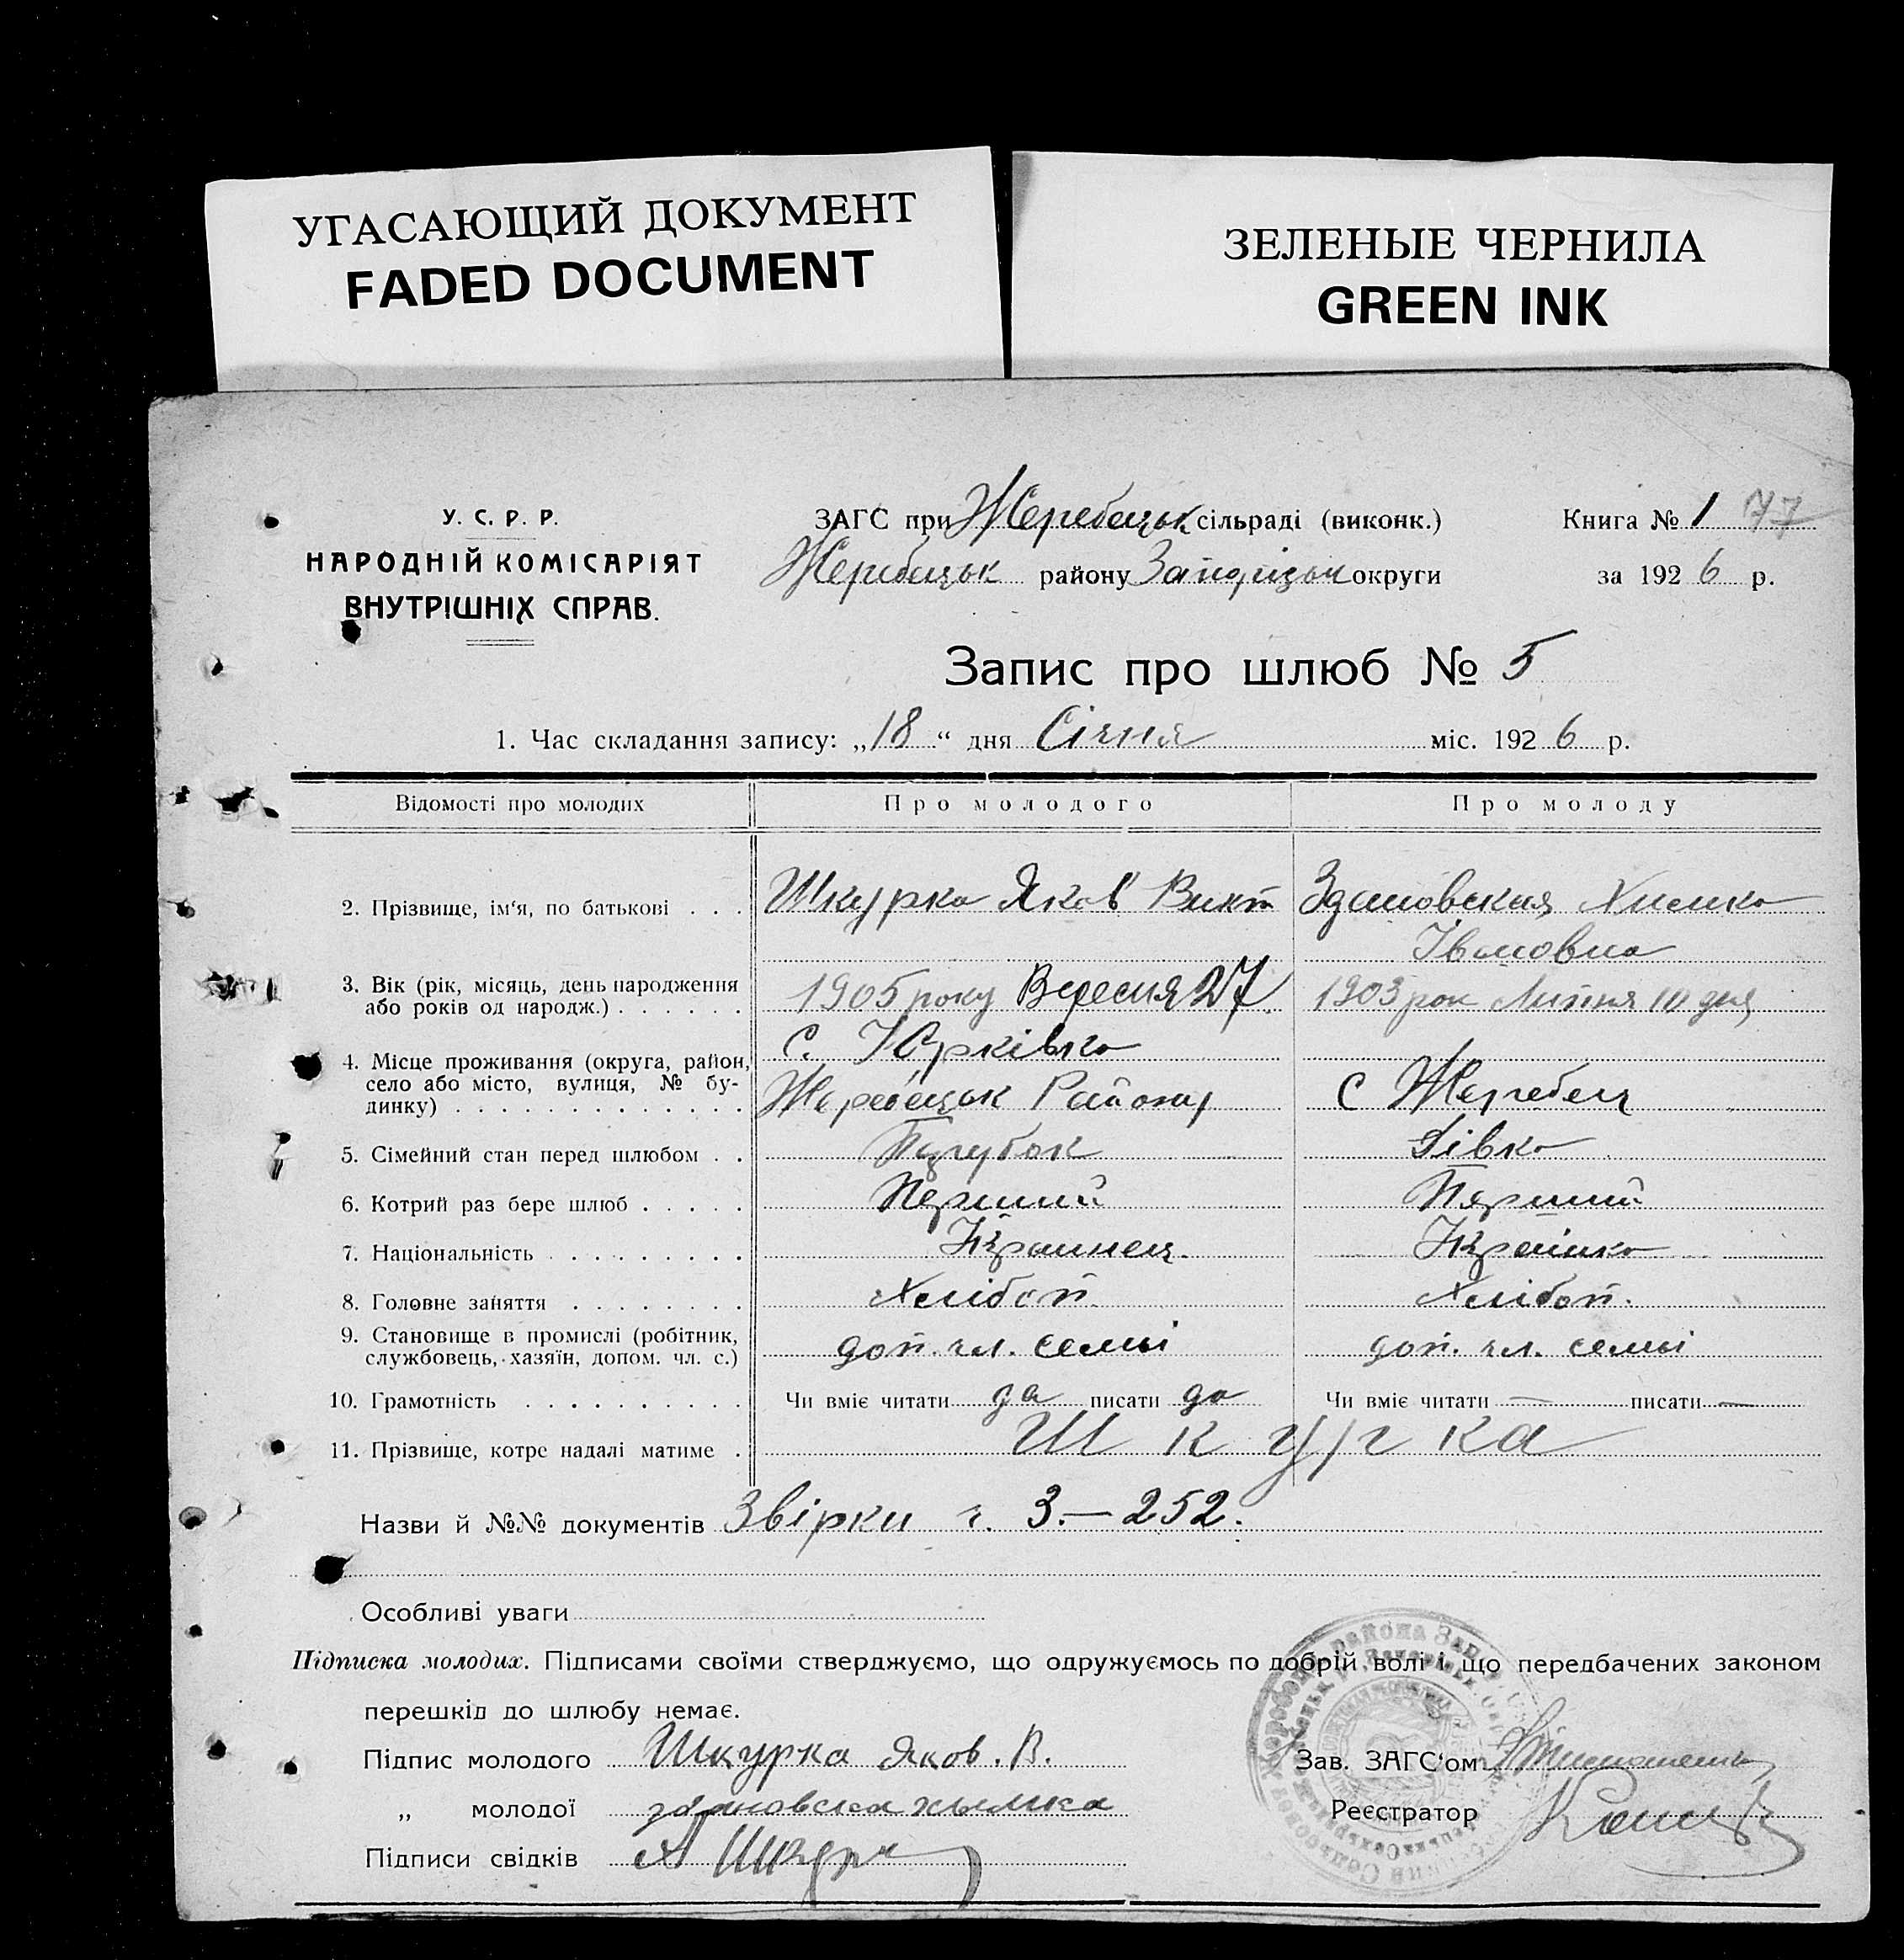 УГАСАЮЩИЙ ДОКУМЕНТ
FADED DOCUMENT
ЗЕЛЕНЫЕ ЧЕРНИЛА
GREEN INK
У. С. Р. Р.
НАРОДНІЙ КОМІСАРІЯТ
ВНУТРІШНІХ СПРАВ.
ЗАГС при Жеребецьк сільраді (виконк.)
Жеребецьк району Запоріzьк округи
Книга № 1 77
за 1926 р.
Запис про шлюб № 5
1. Час складання запису: „18“ дня Січня міс. 1926 р.
Відомості про молодих Про молодого Про молоду
2. Прізвище, ім'я, по батькові . . . Шкурка Яков Викт Здановская Химка
Івановна
3. Вік (рік, місяць, день народження
або років од народж.) . . . . . . 1905 року Вересня 27 1903 рок Липня 10 дня
4. Місце проживання (округа, район,
село або місто, вулиця, № бу-
динку) . . . . . . . . . . . . .
С. Юрківка
Жеребецьк Району С Жеребец
5. Сімейний стан перед шлюбом . . Парубок Дівка
6. Котрий раз бере шлюб . . . . . Перший Перший
7. Національність . . . . . . . . . Украинец. Украінка
8. Головне заняття . . . . . . . . Хлібоп. Хлібоп.
9. Становище в промислі (робітник,
службовець, хазяїн, допом. чл. с.) доп. чл. семьі доп. чл. семьі
10. Грамотність . . . . . . . . . . Чи вміє читати да писати да Чи вміє читати — писати —
11. Прізвище, котре надалі матиме . Шкурка
Назви й №№ документів Звірки ч. 3.—252.
Особливі уваги
Підписка молодих. Підписами своїми стверджуємо, що одружуємось по добрій волі і що передбачених законом
перешкід до шлюбу немає.
Підпис молодого Шкурка Яков. В.
Зав. ЗАГС'ом
„ молодої здановска хымка
Реєстратор
Підписи свідків